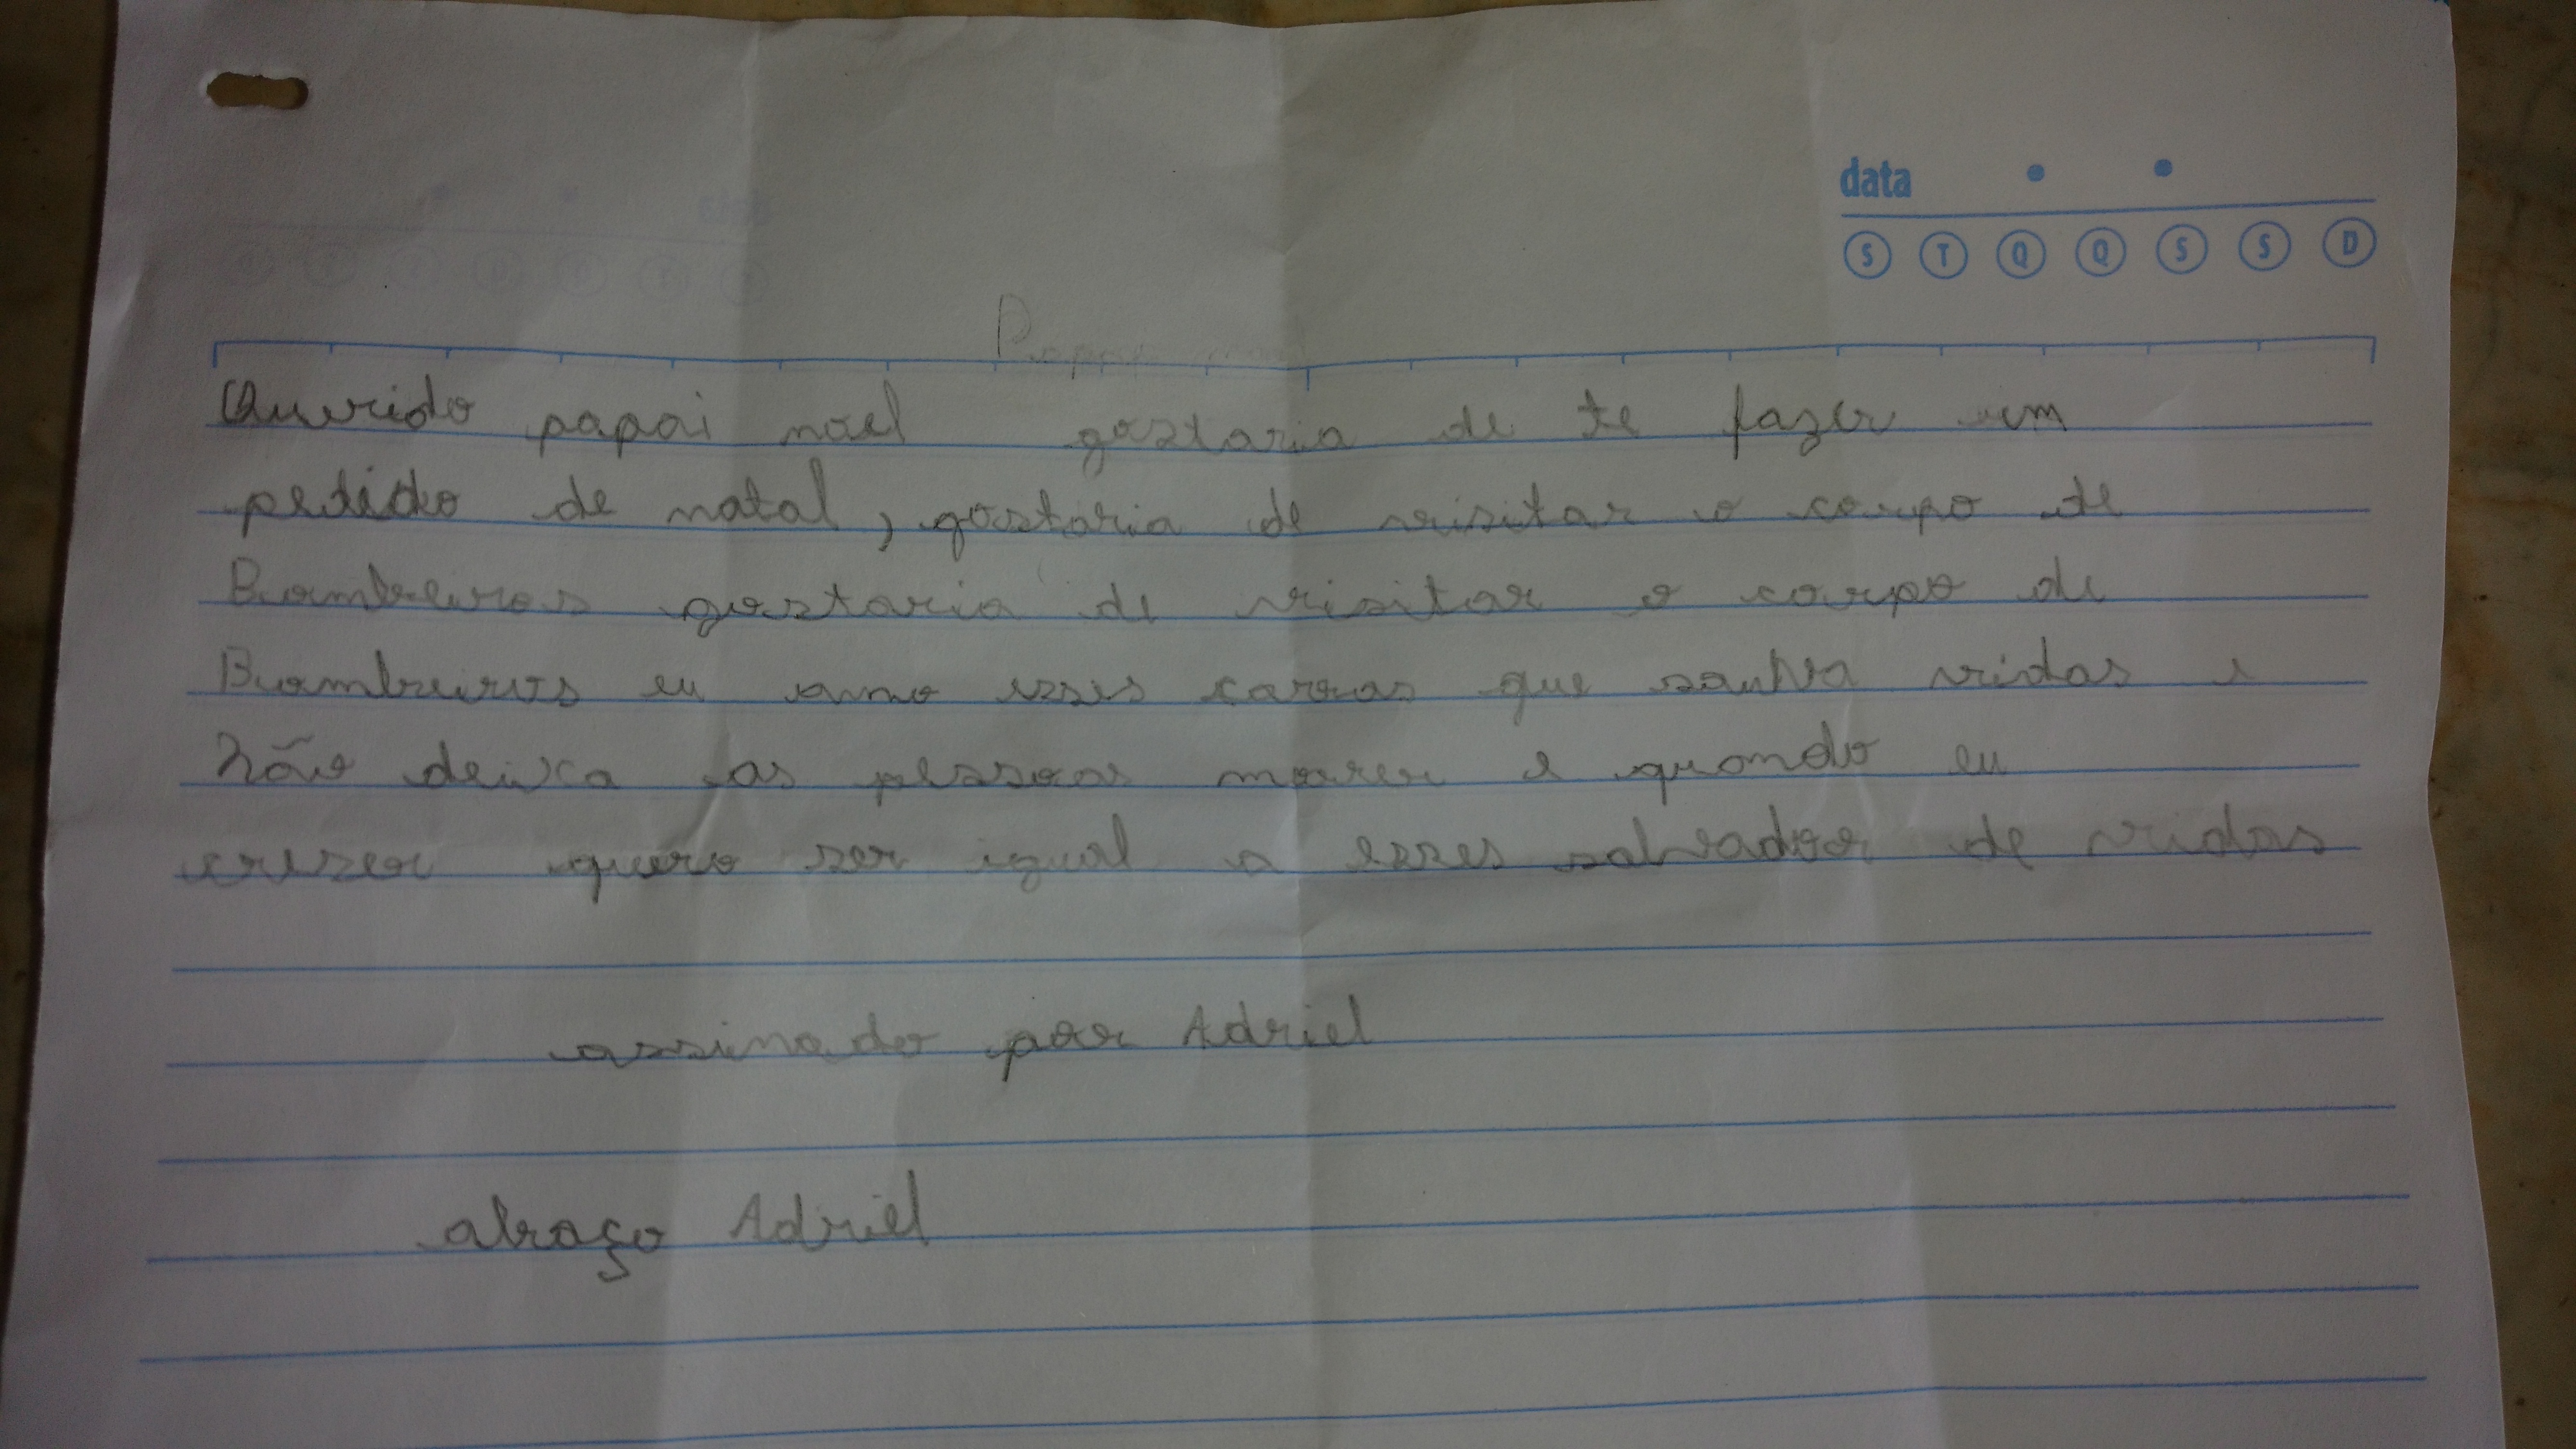 data
S T Q Q S S D
Querido papai noel gostaria de te fazer um
pedido de natal, gostaria de visitar o corpo de
Bombeiros gostaria de visitar o corpo de
Bombeiros eu amo esses carras que saulva vidas e
não deixa as pessoas morer e quando eu
creser quero ser igual a esses salvador de vidas
assinado por Adriel
abraço Adriel